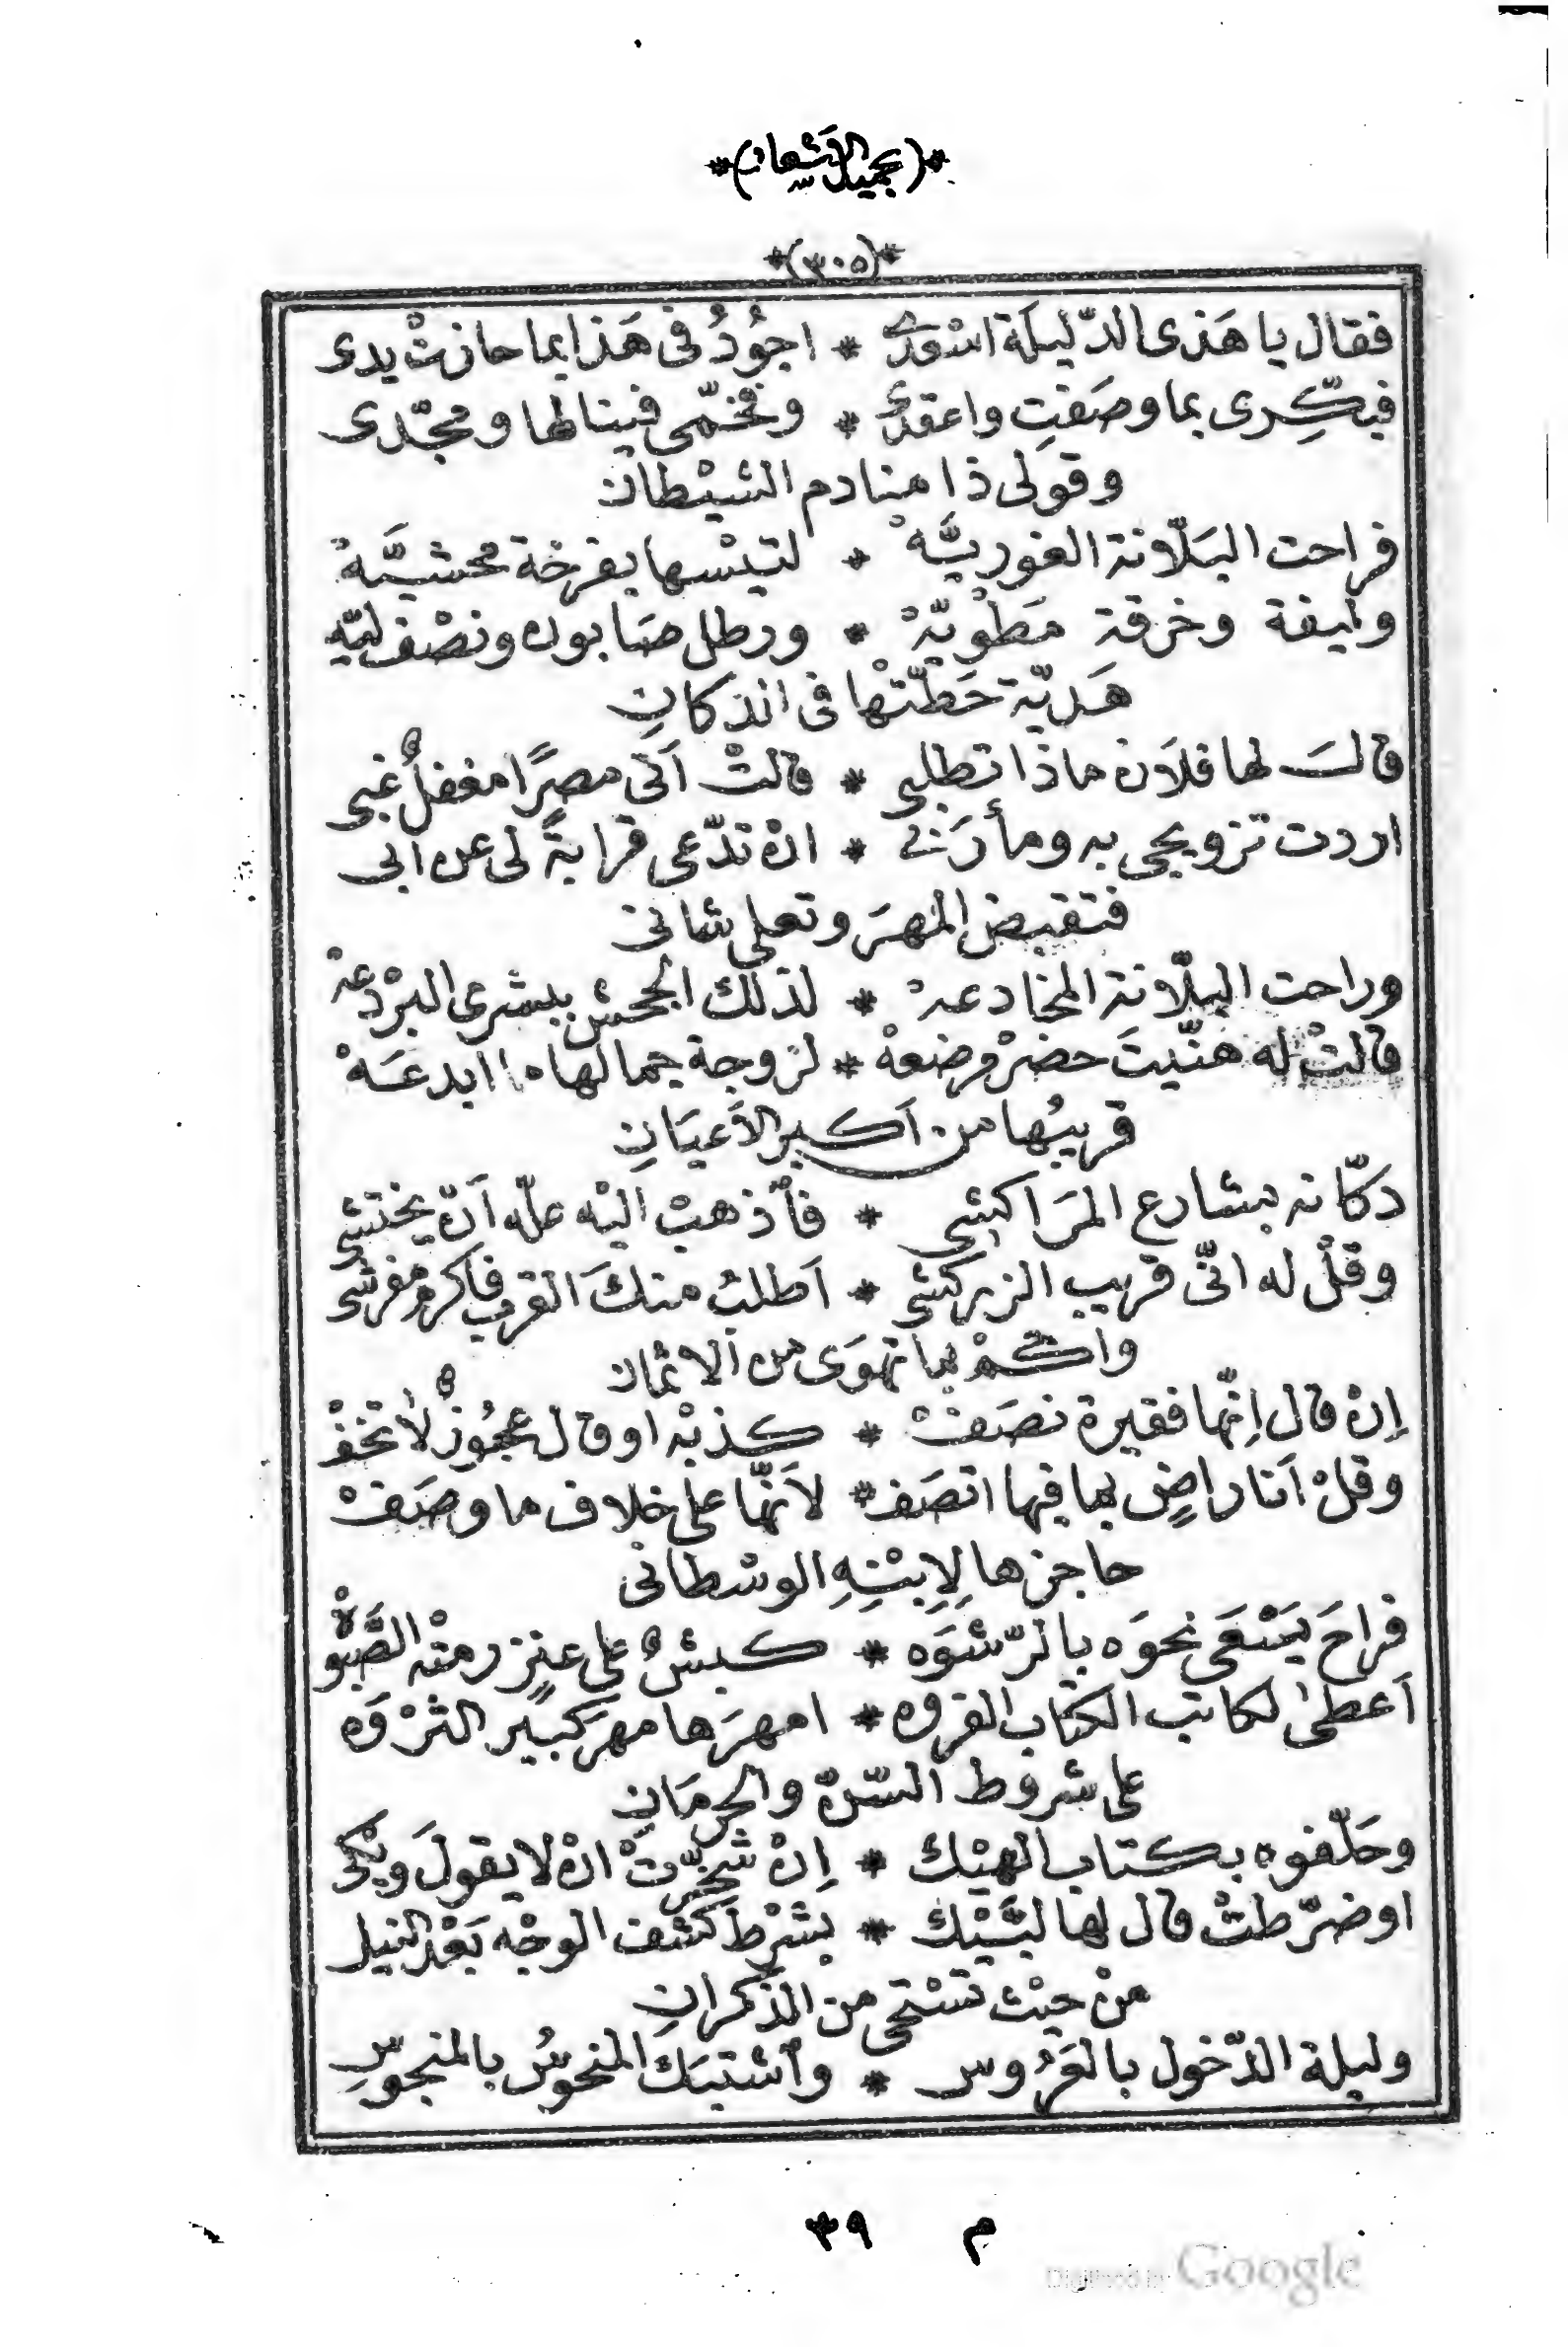 *(بجميل الأشعار)*
*(٣٠٥)*
فقال يا هَذى الدّليلة اسْعدى * اجُودُ فى هَذا بما حازتْ يدى
فبكّرِى بما وصَفتِ واعقدى * وفخّمى فينالها ومجّدى
وقولى ذا منادم الشيْطان
فراحت البَلّانة الغوريَّهْ * لتيْسها بفرخة محشيَّهْ
وليفة وخرقة مَطْويّهْ * ورطل صَابون ونصْف ليّه
هَديّة حَطّتْها فى الدكانِ
قالتَ لها فلاَن ماذا تطلبى * قالتْ اَتى مصرًا مغفلٌ غبى
اردت تزويجى به ومأربى * انْ تدّعى قرابةً لى عن ابى
فتقبض المهرَ وتعلى شانى
وراحت البلّانة المخادعهْ * لذلك الجحش ببشرى البرْدعهْ
قالتْ له هنّيتَ حضرْ مرضعهْ * لزوجة جمالها ما ابدعَهْ
قريبُها من اَكبر الاَعيَانِ
دكّانه بشارع المرَاكشى * فاْذهبْ اليْه علّه اَنّ يختشى
وقلْ له انّى قريب الزركشى * اَطلبُ منكَ القرب فاكرم مفرشى
واحكمْ بما تهوَى من الاثمان
إنْ قال إنّها فقيرة نصَفْ * كذبْه او قال عجُوزٌ لا تخفْ
وقلْ اَنا راضٍ بما فيها اتصَف * لاَنّها على خلاف ما وصَفْ
حاجزها لِإبْنِهِ الوسْطانى
فراحَ يَسْعَى نحوَه بالرّشوَه * كبشٌ على عنزٍ رمتْه الصَّبْوهْ
اَعطى لكاتب الكتاب الفروه * امهرَها مهرَ كبير الثرْوَه
على شروط السّنّ والحرمَانِ
وحَلّفوه بكتاب الهيْك * إنْ شخّرتْ انْ لا يقولَ ويْكى
او ضرّطتْ قال لها لبَّيْك * بشَرْط كشْف الوجْه بَعْد النيل
منْ حيْث تسْتحى من الذكرانِ
وليلة الدّخول بالعَرُوس * واْشتبَك المنحوسُ بالمنحوسِ
م ٣٩
Digitized by Google